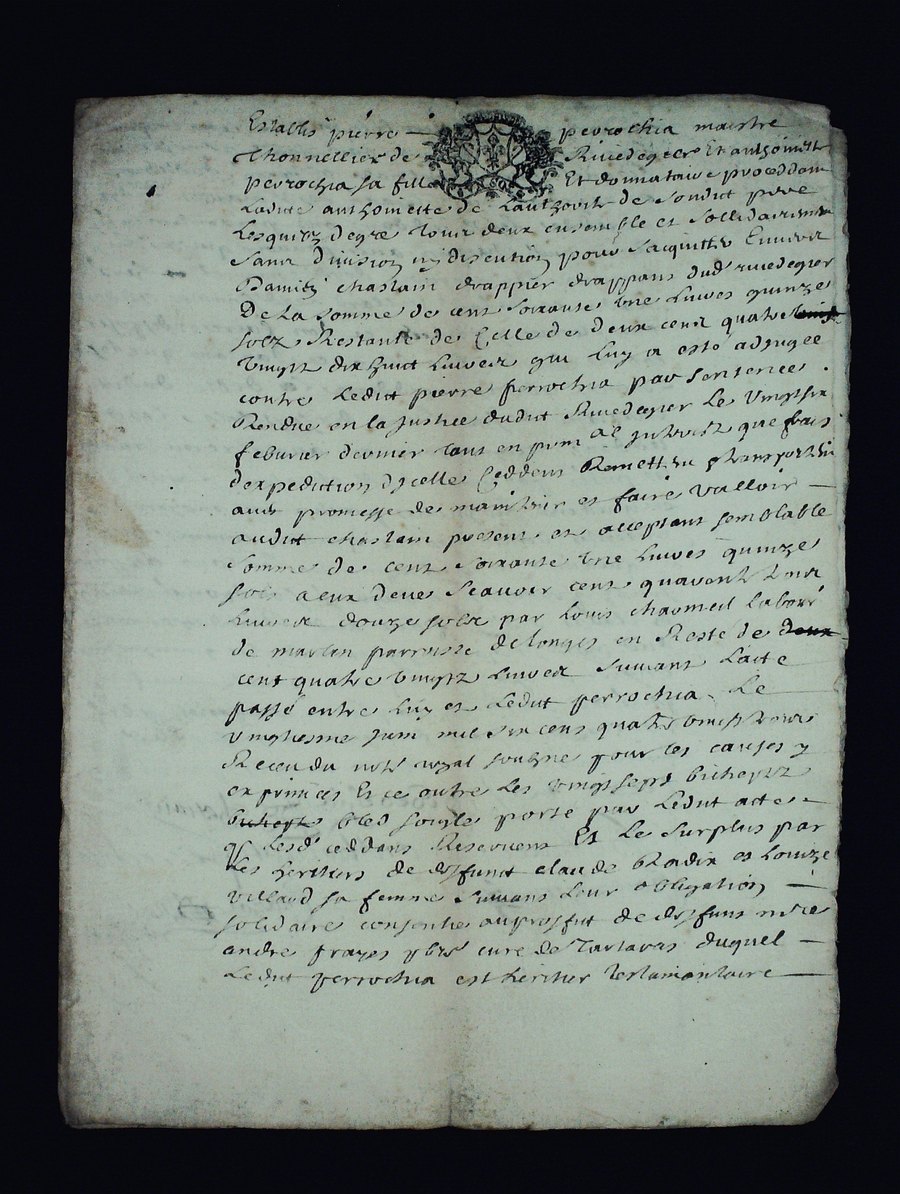 Establis pierre perrochia maistre
Thonnellier de Rivedegier Et anthoinette
perrochia sa fille Et donnataire proceddant
Ladite anthoinette de Lauthorité de sondit père
Lesquelz degre tous deux ensemble et sollidairement
sans division ny discution pour sacquitter Envers
Damitz chastain drappier drappans dud rivedegier
De La somme de cent soixante une Livres quinze
solz Restante de Celle de deux cens quatre
vingtz dix huict Livres qui Luy a esté adjugée
contre Ledit pierre perrochia par sentence
Rendue en la Justice dudit Rivedegier Le vingtsix
febvrier dernier tant en prin al que frais
dexpedition dicelle Ceddent Remettent transportent
avec promesse de maintenir et faire valloir
audit chastain present et acceptant semblable
somme de cent soixante une Livres quinze
sols a eux deue Scavoir cent quarante trois
Livres douze solz par Louis charmeil Labour
de marlan parroisse de Longes en Reste de deux
cent quatre vingtz Livres suivant Lacte
passé entre Luy et Ledit perrochia Le
vingtiesme Juin mil six cens quatre vingt trois
Receu du notre royal soubzne pour les causes y
exprimees Et ce outre les vingt sept bichetz
bichetz bled soigle porté par Ledit acte
q Lesd ceddans Reservent Et Le surplus par
Les heritiers de deffunt claude Radix et Louize
villard sa femme suivant Leur obligation
solidaire consentie au proffit de deffunt mre
andre frayes pbre curé de Tartaras duquel
Ledit perrochia est heritier testamentaire